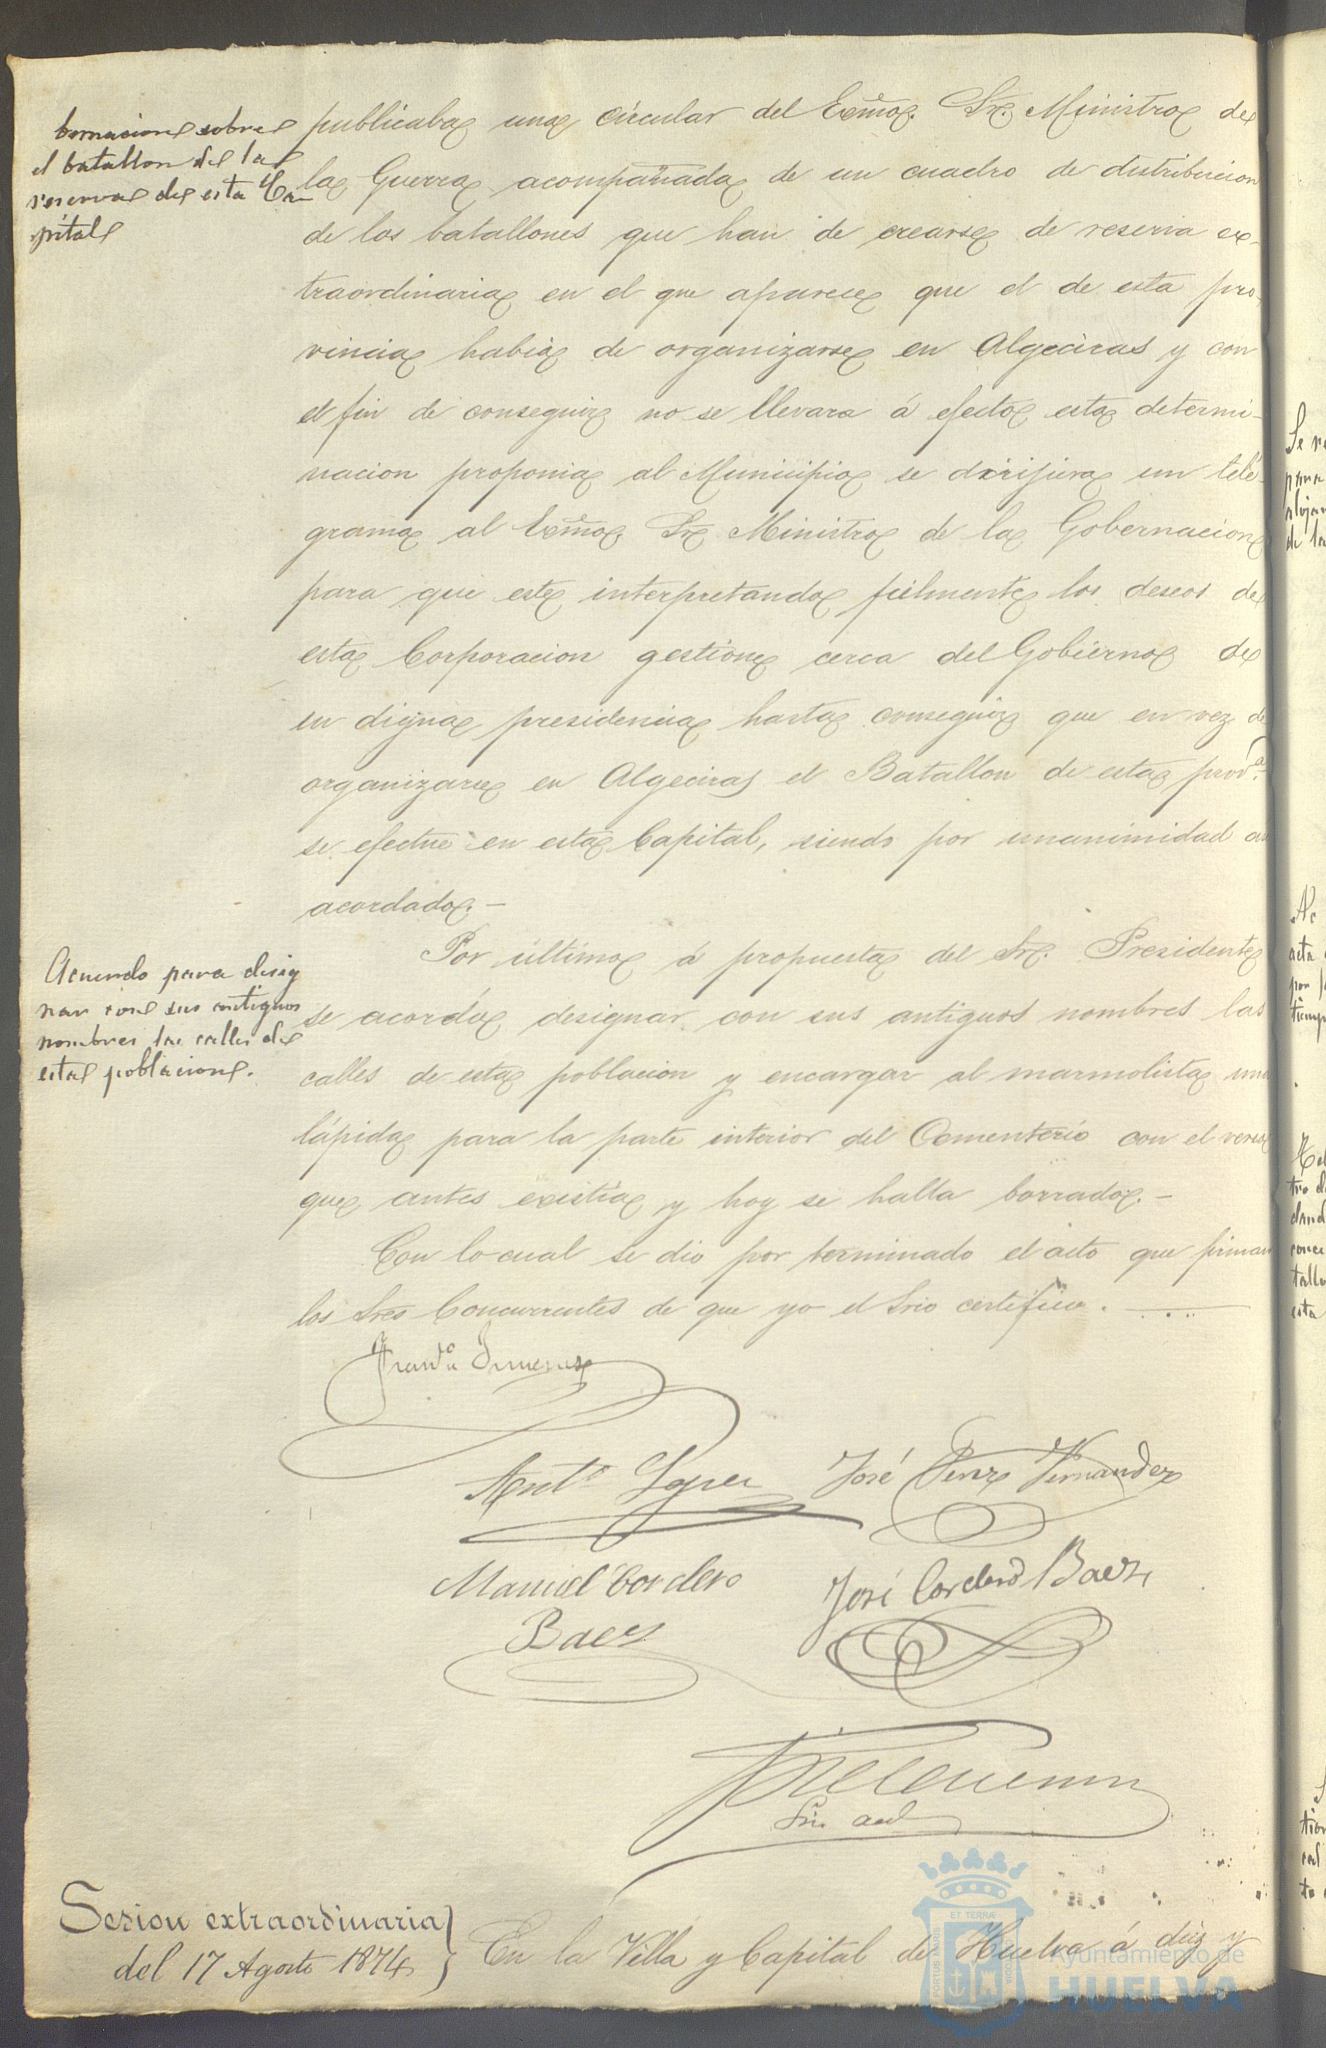 bernacion sobre
el batallon de la
reserva de esta Ca-
pital
publicaba una circular del Exmo. Sr. Ministro de
la Guerra acompañada de un cuadro de distribucion
de los batallones que han de crearse de reserva ex-
traordinaria en el que aparece que el de esta pro-
vincia habia de organizarse en Algeciras y con
el fin de conseguir no se llevara á efecto esta determi-
nacion proponia al Municipio se dirijiera un tele-
grama al Exmo. Sr. Ministro de la Gobernacion
para que este interpretando fielmente los deseos de
esta Corporacion gestione cerca del Gobierno de
su digna presidencia hasta conseguir que en vez de
organizarse en Algeciras el Batallon de esta prova.
se efectue en esta Capital, siendo por unanimidad
acordado.-
Acuerdo para desig
nar con sus antiguos
nombres las calles de
esta poblacion.
Por último á propuesta del Sr. Presidente
se acordó designar con sus antiguos nombres las
calles de esta poblacion y encargar al marmolista una
lápida para la parte interior del Cementerio con el verso
que antes existia y hoy se halla borrado.-
Con lo cual se dió por terminado el acto que firman
los Sres Concurrentes de que yo el Srio certifico.
Franco Jimenez
Anto Lopez José Perez Fernandez
Manuel Cordero
Baez
José Cordero Baez
Srio acc
Sesion extraordinaria
del 17 Agosto 1874
En la Villa y Capital de Huelva á diez y
Ayuntamiento de
HUELVA